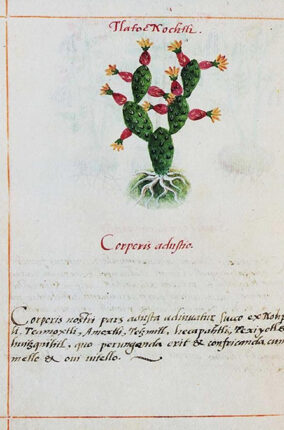 Tlatocnochtli.
Corporis adustio.
Corporis nostri pars adusta adiuvatur succo ex
Teamoxtli, Amoxtli, Tetzmitl, hecapahtli,
huitzquilitl, quo perungenda erit & confricanda cum
melle & oui uitello.